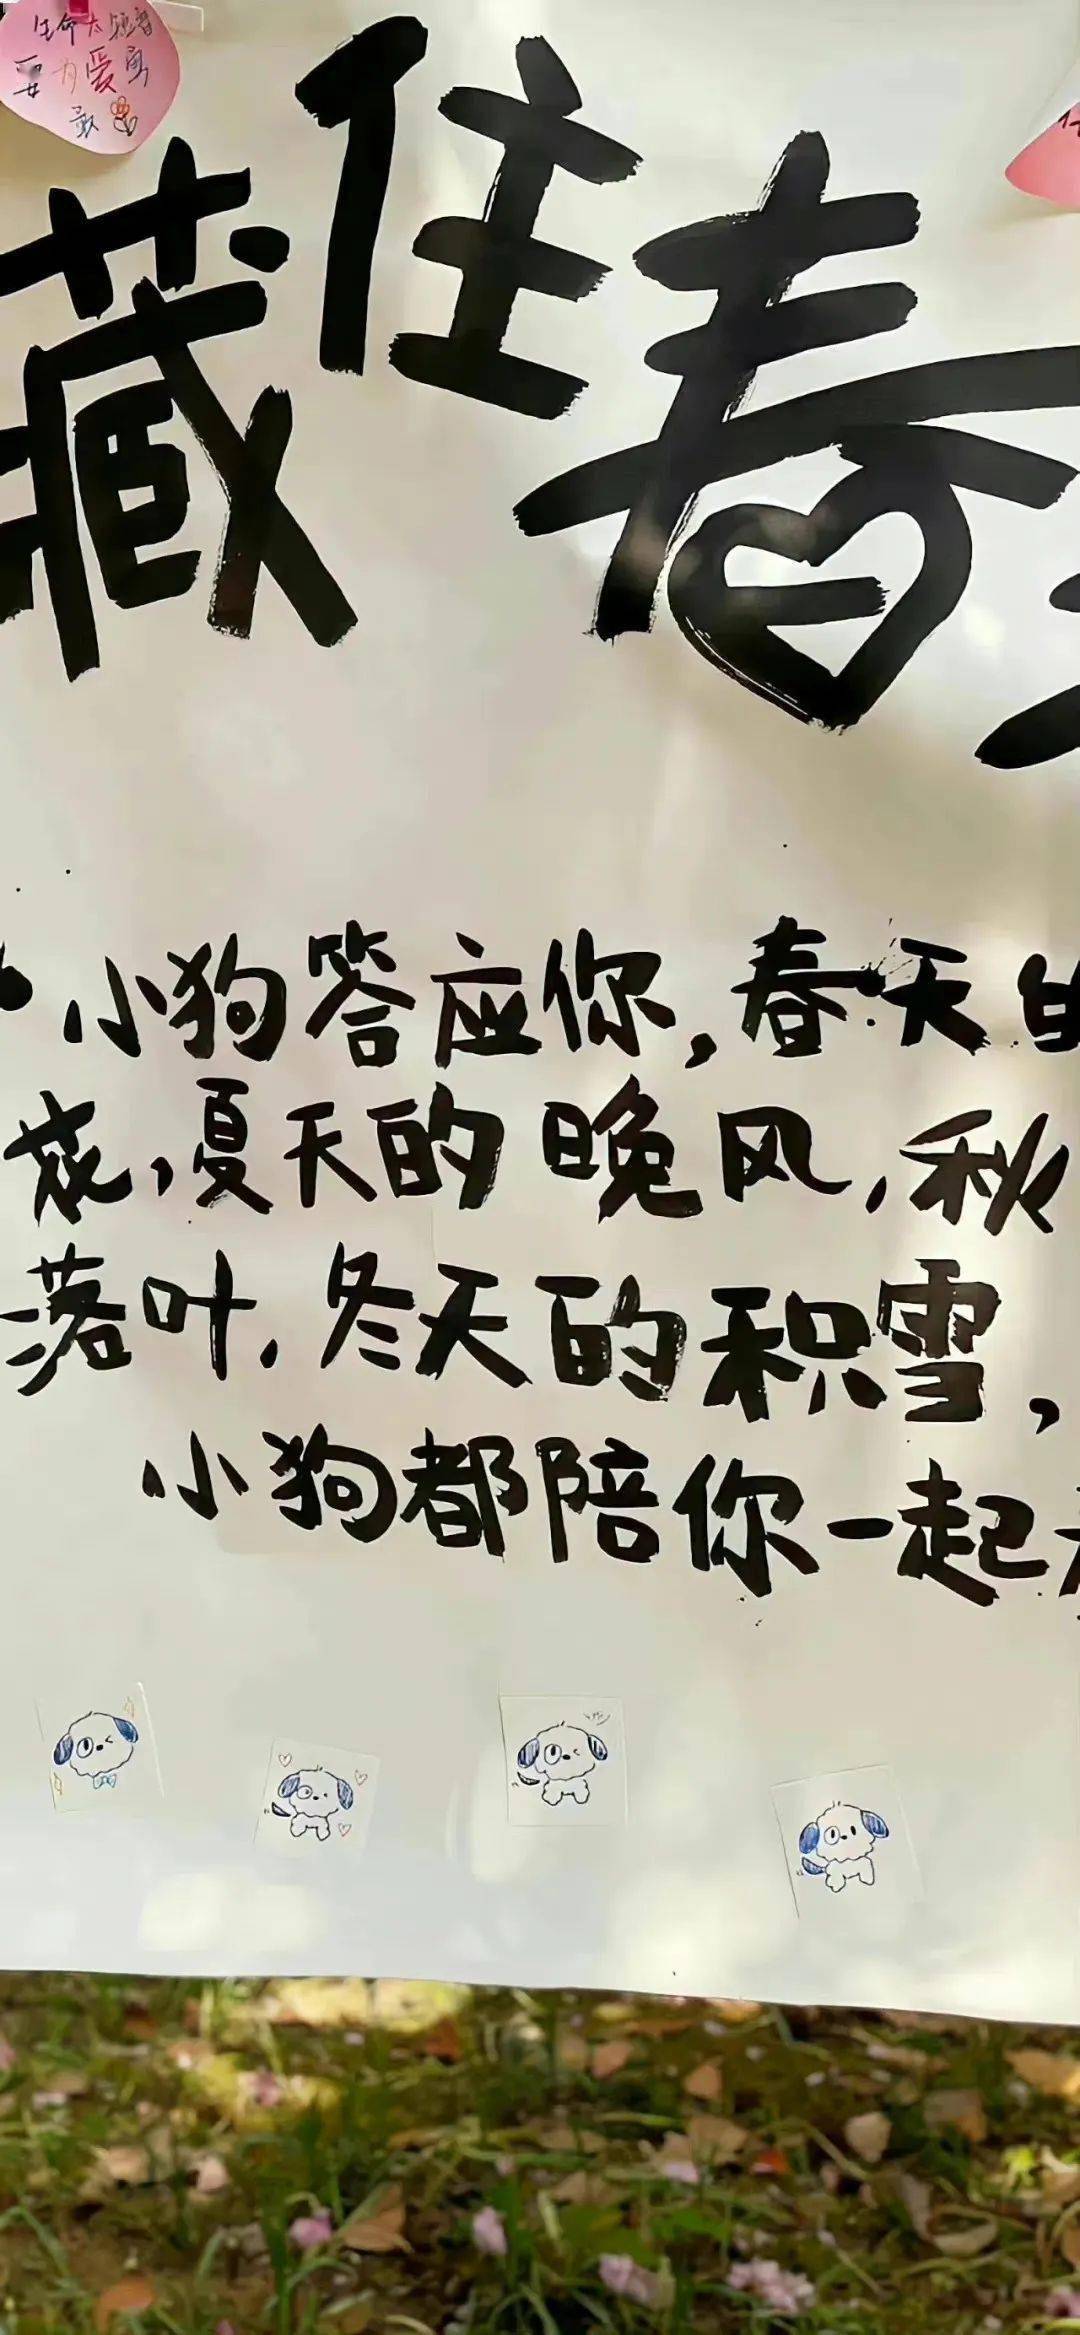 生命太短暂
要为爱勇
敢
藏住春
小狗答应你，春天
花，夏天的晚风，秋
落叶，冬天的积雪，
小狗都陪你一起